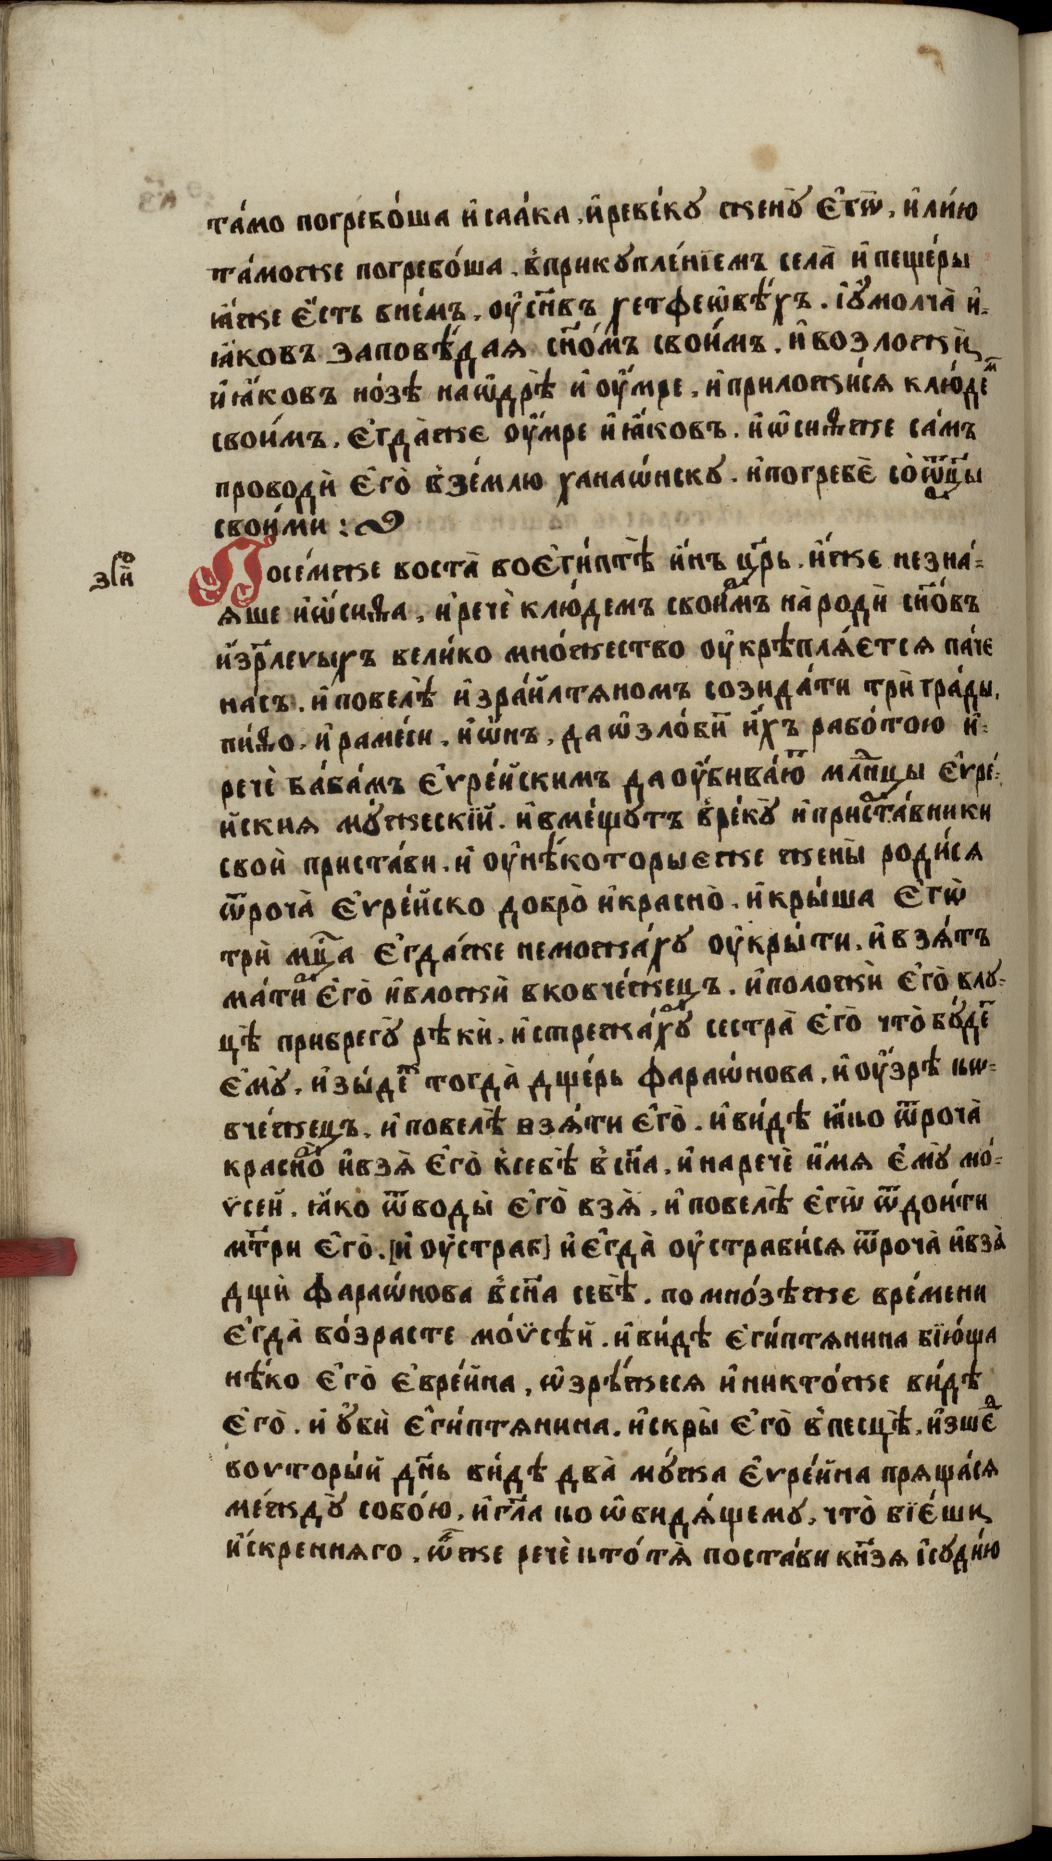 та́мо погребо́ша и҆саа́ка, и҆ реве́ку женꙋ̀ є҆гѡ̀, и҆ ли́ю
та́може погребо́ша, в̾прикꙋпле́нїемъ села̀ и҆ пеще́ры
ꙗ҆́же є҆́сть в не́мъ, ᲂу҆ сн҃въ хетфеѡ́вѣхъ. і҆ ᲂу҆молча̀ и҆-
ꙗ҆́ковъ заповѣ́дая сн҃о́мъ свои́мъ. и҆ возложѝ
и҆ꙗ҆́ковъ но́зѣ на ѡ҆дрѣ̀ и҆ ᲂу҆́мре, и҆ приложи́ся к лю́деⷨ
свои́мъ. є҆гда̀же ᲂу҆́мре и҆ꙗ҆́ковъ. и҆ѡ҆си́ѳже са́мъ
проводѝ є҆го̀ в̾ зе́млю ханаѡ́нскꙋ. и҆ погребѐ со ѻ҆тц҃ы
свои́ми :
зⷱ҇и҃ Посе́мже воста̀ во є҆ги́птѣ и҆́нъ цр҃ь. и҆́же незна́-
ѧше и҆ѡ҆́сиѳа, и҆ речѐ к лю́демъ свои́мъ наро́ди сн҃о́въ
и҆зр҃леѵыхъ вели́ко мно́жество ᲂу҆крѣплѧ́єтсѧ па́че
на́съ. и҆ повелѣ̀ и҆зра́илтѧномъ созида́ти трѝ гра́ды,
пи́ѳо, и҆ раме́си, и҆ ѡ҆́нъ, да ѡ҆зло́биⷮ и҆́хъ рабо́тою и҆-
речѐ ба́бамъ є҆ѵре́йскимъ да ᲂу҆бива́юⷮ мл҃нцы є҆ѵре́-
йскиѧ мꙋ́жескїй. и҆ вме́щꙋтъ в̾ре́кꙋ и҆ приста́вники
своѝ приста́ви. и҆ ᲂу҆ нѣ́которыєже жены̀ роди́сѧ
ѿроча̀ є҆ѵре́йско добро̀ и҆ красно̀. и҆ кры́ша є҆гѡ̀
трѝ мц҃а є҆гда́же неможа́хꙋ ᲂу҆кры́ти. и҆ взѧ́тъ
ма́ти є҆го̀ и҆ вложѝ в ковче́жецъ. и҆ положѝ є҆го̀ в лꙋ-
цѣ̀ при брегꙋ̀ рѣкѝ, и҆ стрежа́хꙋ сестра̀ є҆го̀ что̀ бꙋ́деⷮ
є҆мꙋ̀, и҆зы́деⷤ тогда̀ дще́рь фараѡ́нова, и҆ ᲂу҆зрѣ̀ кѡ-
вче́жецъ. и҆ повелѣ̀ взѧ́ти є҆го̀. и҆ ви́дѣ ꙗ҆́ко ѿроча̀
красно̀ и҆ взѧ̀ є҆го̀ к̾ себѣ̀ в̾ сн҃а, и҆ наречѐ и҆́мѧ є҆мꙋ̀ мо-
ѵсей. ꙗ҆́ко ѿ воды̀ є҆го̀ взѧ̀, и҆ повелѣ̀ є҆гѡ̀ ѿдои́ти
мт҃ри є҆го̀. [и҆ ᲂу҆страв] и҆ є҆гда̀ ᲂу҆страви́сѧ ѿроча̀ и҆ взѧ̀
дщѝ фараѡ́нова в̾ сн҃а себѣ̀. по мно́зѣже вре́мени
є҆гда̀ во́зрасте мо́ѵсѣй. и҆ ви́дѣ є҆ги́птѧнина бїю́ща
нѣ́ко є҆го̀ є҆вре́ина, ѡ҆зрѣ́жесѧ и҆ никто́же ви́дѣ
є҆го̀. и҆ ᲂу҆бѝ є҆ги́птѧнина. и҆ скры̀ є҆го̀ в̾ песцѣ̀. и҆зшеⷣ
во ѵторы́й дн҃ь ви́дѣ два̀ мꙋ́жа є҆ѵре́ина прѧща́сѧ
ме́ждꙋ собо́ю, и҆ гл҃а ко ѡ҆бидѧ́щемꙋ, что̀ бїе́ши
и҆́скреннѧго, ѻ҆́нже речѐ кто́ тѧ̀ поста́ви кн҃зѧ і҆ сꙋдїю̀